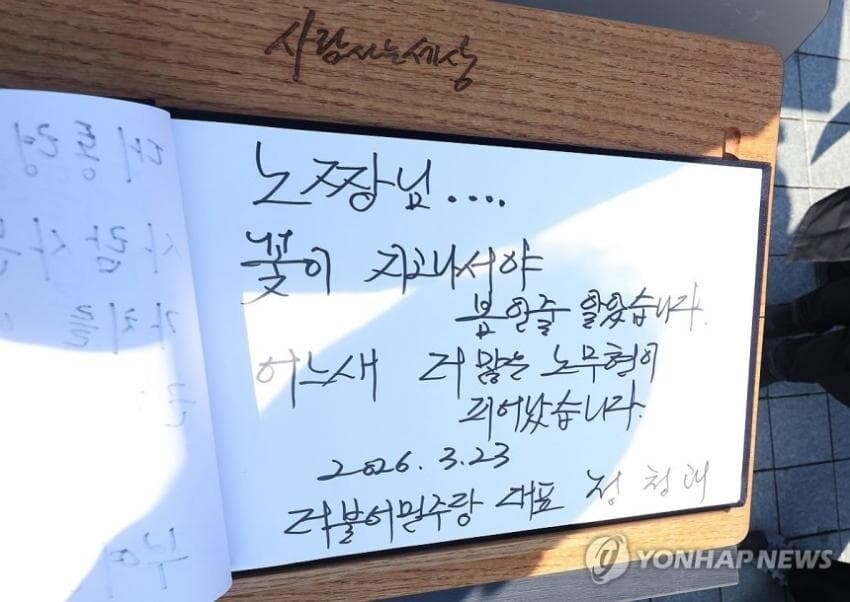 사람사는세상
노짱님....
꽃이 지고나서야
봄인줄 알았습니다.
어느새 더 많은 노무현이
피어났습니다.
2026.3.23
더불어민주당 대표 정청래
YONHAP NEWS